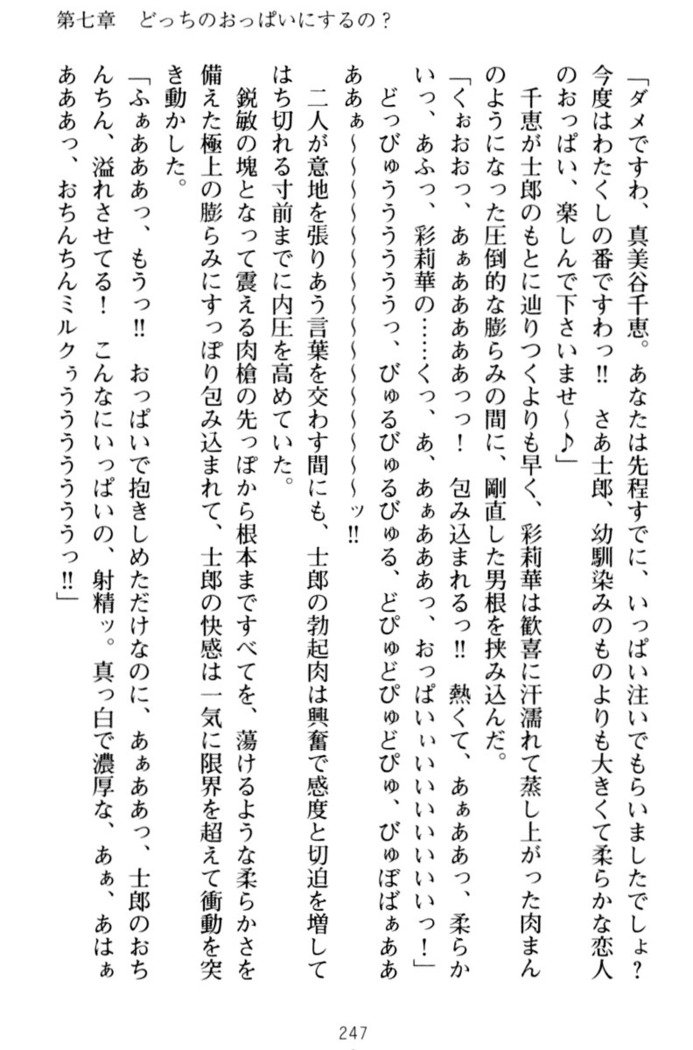 第七章　どっちのおっぱいにするの？
「ダメですわ、真美谷千恵。あなたは先程すでに、いっぱい注いでもらいましたでしょ？
今度はわたくしの番ですわっ!!　さあ士郎、幼馴染みのものよりも大きくて柔らかな恋人
のおっぱい、楽しんで下さいませ～♪」
　千恵が士郎のもとに辿りつくよりも早く、彩莉華は歓喜に汗濡れて蒸し上がった肉まん
のようになった圧倒的な膨らみの間に、剛直した男根を挟み込んだ。
「くぉおおっ、あぁああああああっっ！　包み込まれるっ!!　熱くて、あぁああっ、柔らか
いっ、あふっ、彩莉華の……くっ、あ、あぁああああっ、おっぱいぃぃいいいいいいいっ！」
　どっびゅうううううううっ、びゅるびゅるびゅる、どぴゅどぴゅどぴゅ、びゅぼばぁああ
ああぁ～～～～～～～～～～～～ッ!!
　二人が意地を張りあう言葉を交わす間にも、士郎の勃起肉は興奮で感度と切迫を増して
はち切れる寸前までに内圧を高めていた。
　鋭敏の塊となって震える肉槍の先っぽから根本まですべてを、蕩けるような柔らかさを
備えた極上の膨らみにすっぽり包み込まれて、士郎の快感は一気に限界を超えて衝動を突
き動かした。
「ふぁああああっ、もうっ!!　おっぱいで抱きしめただけなのに、あぁああっ、士郎のおち
んちん、溢れさせてる！　こんなにいっぱいの、射精ッ。真っ白で濃厚な、あぁ、あはぁ
ああああっ、おちんちんミルクぅううううううううっ!!」
247